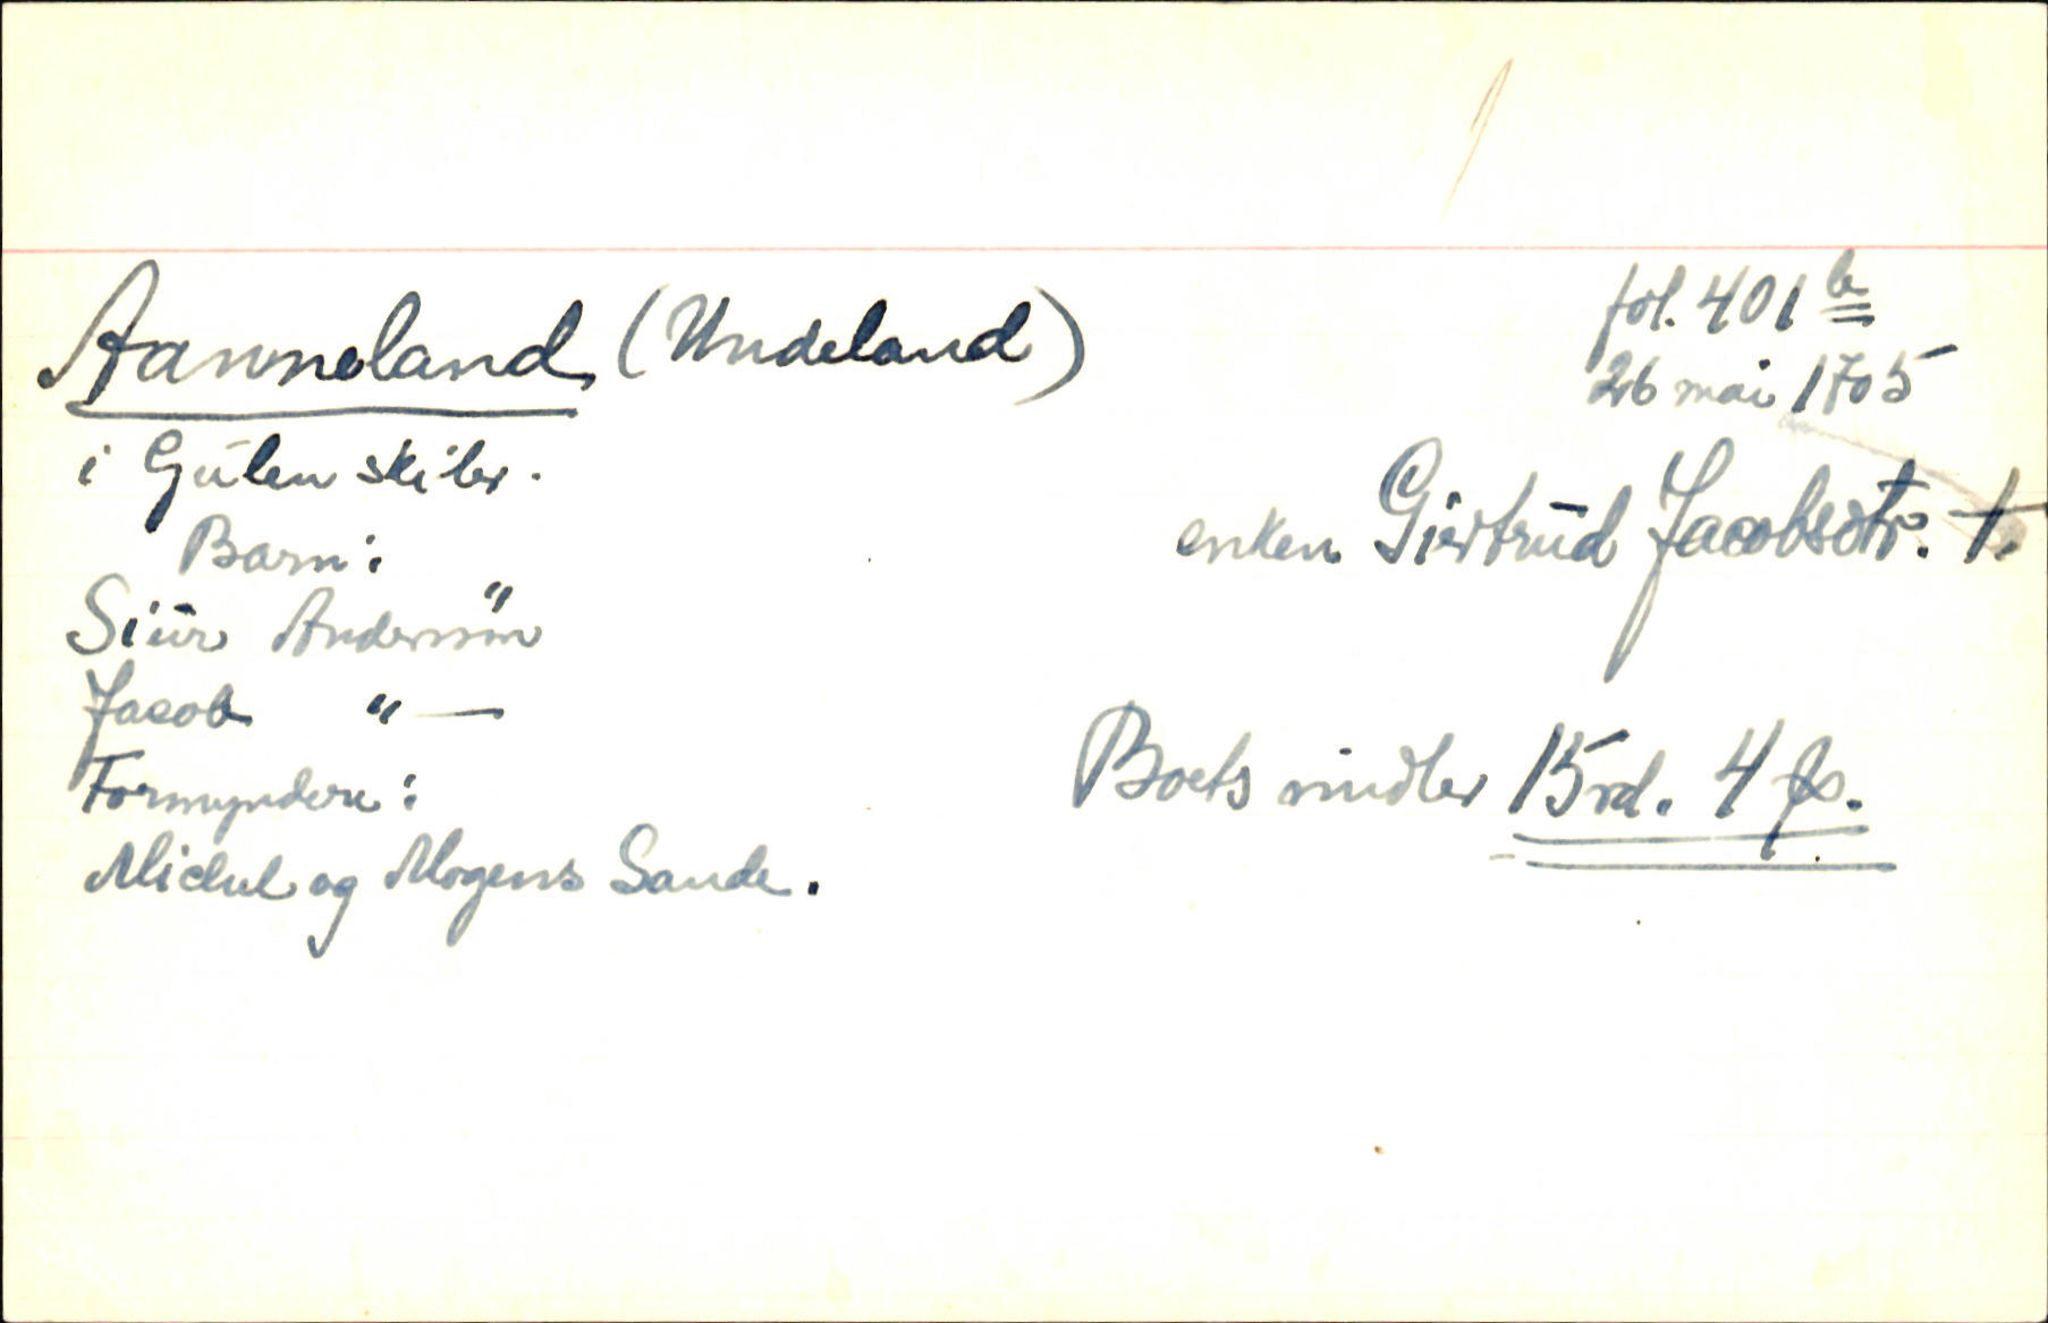 fol. 401 b
Aanneland (Undeland)
26 mai 1705
i Gulen skibr.
enken Giertrud Jacobsdtr. †.
Barn:
Siur Andersøn
Jacob "—
Boets midler 15 rd. 4 ß.
Formyndere:
Michel og Mogens Sande.